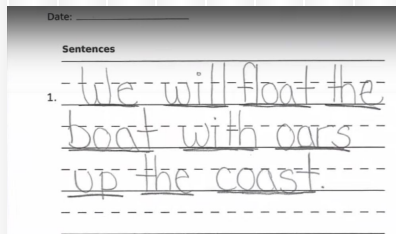 Date:
Sentences
1. We will float the
boat with oars
up the coast.